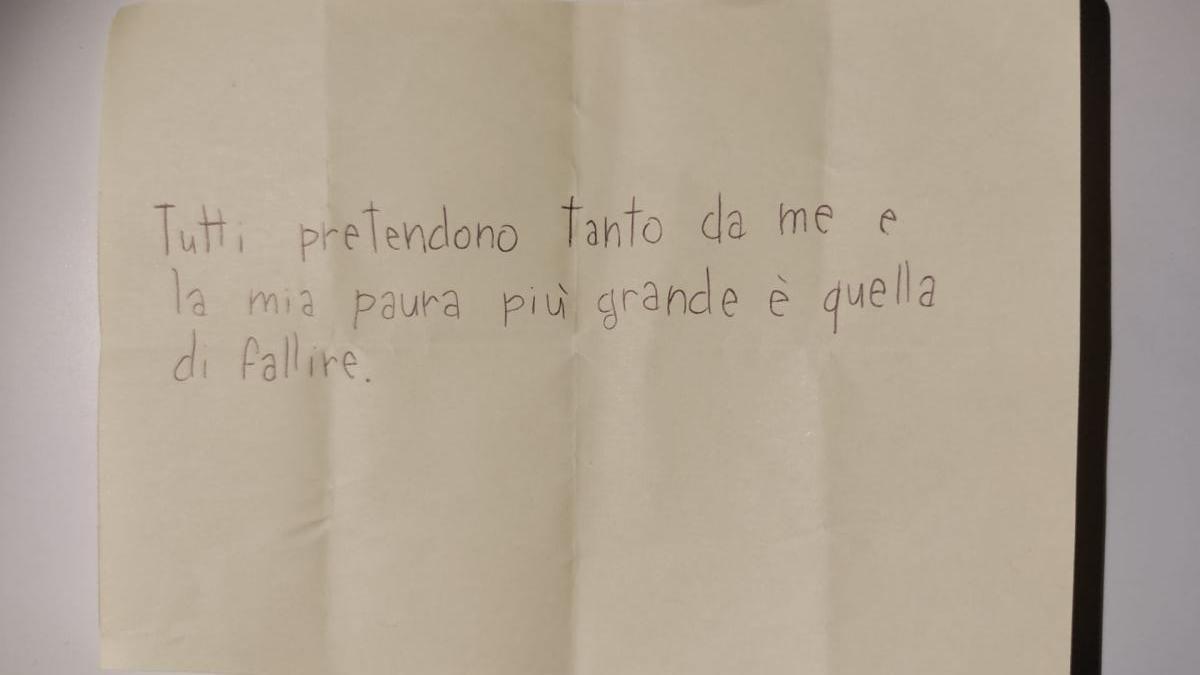 Tutti pretendono tanto da me e
la mia paura più grande è quella
di fallire.